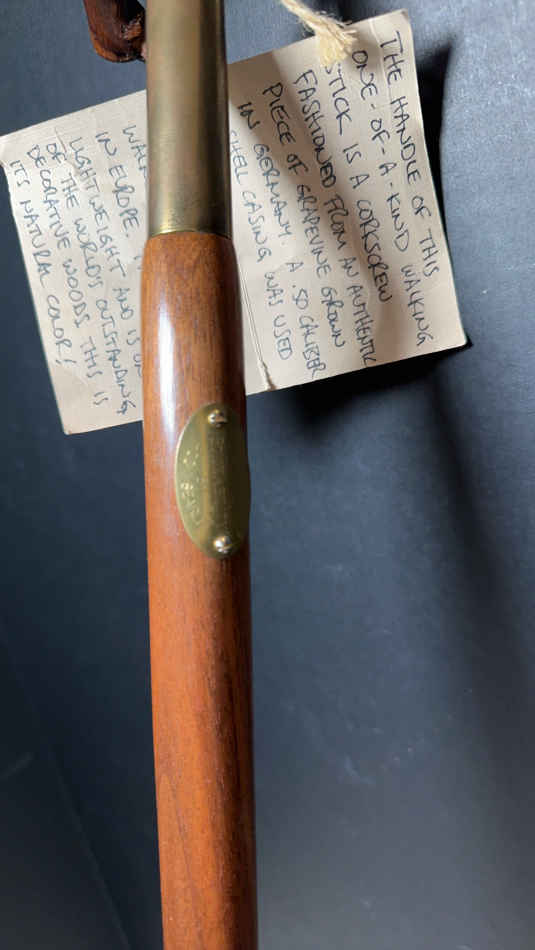 THE HANDLE OF THIS
ONE-OF-A-KIND WALKING
STICK IS A CORKSCREW
FASHIONED FROM AN AUTHENTIC
PIECE OF GRAPEVINE GROWN
IN GERMANY. A .50 CALIBER
SHELL CASING WAS USED
IN EUROPE
LIGHTWEIGHT AND IS
OF THE WORLDS OUTSTANDING
DECORATIVE WOODS. THIS IS
ITS NATURAL COLOR!